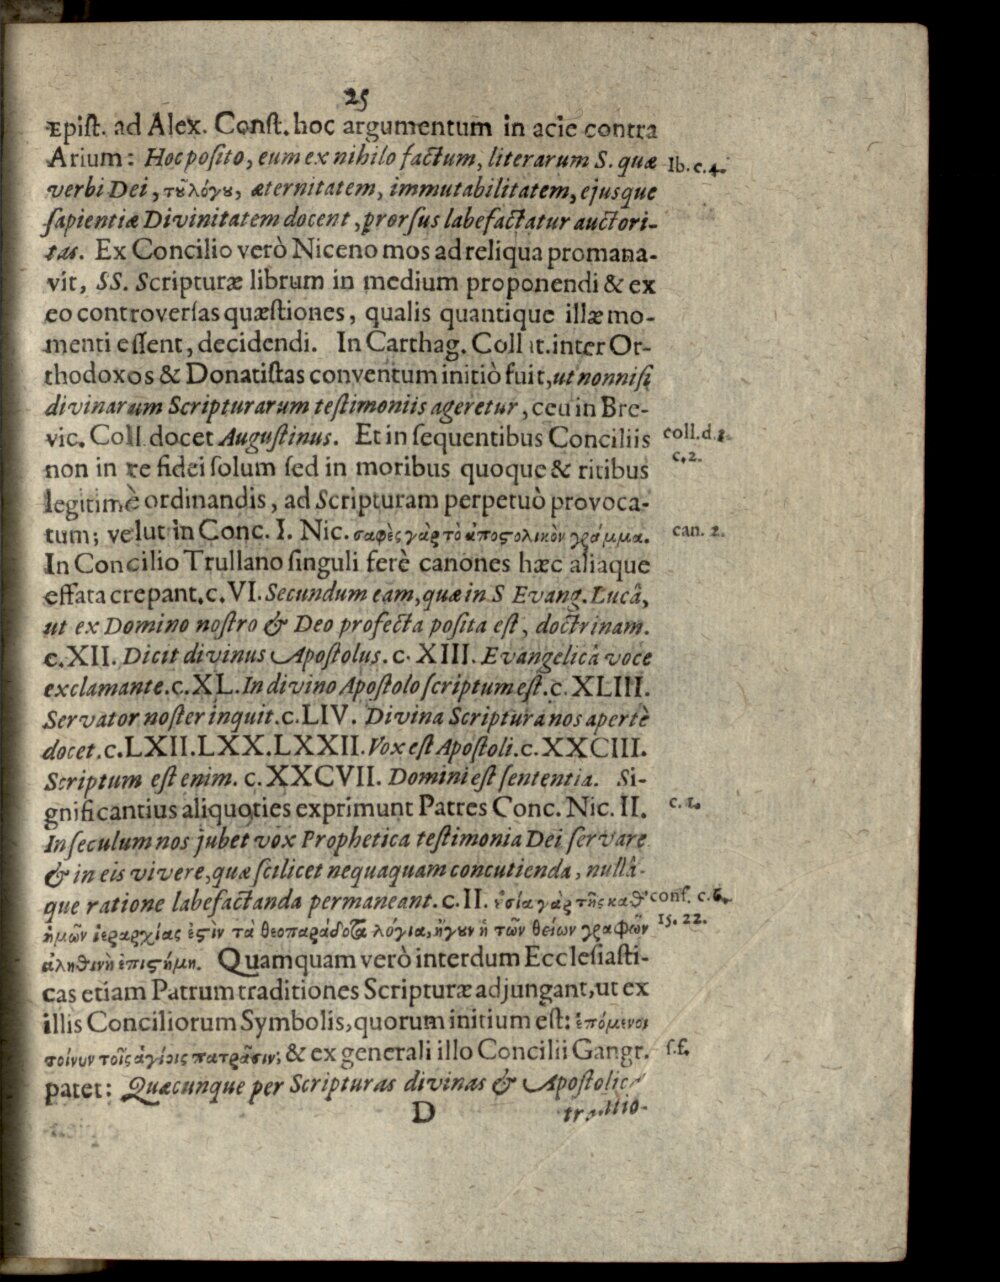 25
Epiſt. ad Alex. Conſt. hoc argumentum in acie contra
Arium: Hoc poſito, eum ex nihilo factum, literarum S. quæ
Ib. c. 4.
verbi Dei, τȣ̃ λόγȣ, æternitatem, immutabilitatem, ejusque
ſapientiæ Divinitatem docent, prorſus labefactatur auctori-
tas. Ex Concilio verò Niceno mos ad reliqua promana-
vit, SS. Scripturæ librum in medium proponendi & ex
eo controverſas quæſtiones, qualis quantique illæ mo-
menti eſſent, decidendi. In Carthag. Coll at. inter Or-
thodoxos & Donatiſtas conventum initiò fuit, ut nonniſi
divinarum Scripturarum teſtimoniis ageretur, ceu in Bre-
vic. Coll docet Auguſtinus. Et in ſequentibus Conciliis
coll. d. 3.
c. 2.
non in re fidei ſolum ſed in moribus quoque & ritibus
legitimè ordinandis, ad Scripturam perpetuò provoca-
tum; velut in Conc. I. Nic. σαφὲς γὰρ τὸ ἀποςολικὸν γράμμα.
can. 2.
In Concilio Trullano ſinguli ferè canones hæc aliaque
effata crepant. c. VI. Secundum eam, quæ in S Evang. Lucâ,
ut ex Domino noſtro & Deo profecta poſita eſt, doctrinam.
c. XII. Dicit divinus Apoſtolus. c. XIII. Evangelicâ voce
exclamante. c. XL. In divino Apoſtolo ſcriptum eſt. c. XLIII.
Servator noſter inquit. c. LIV. Divina Scriptura nos apertè
docet. c. LXII. LXX. LXXII. Vox eſt Apoſtoli. c. XXCIII.
Scriptum eſt enim. c. XXCVII. Domini eſt ſententia. Si-
gnificantius aliquoties exprimunt Patres Conc. Nic. II.
c. 1.
In ſeculum nos jubet vox Prophetica teſtimonia Dei ſervare
& in eis vivere, quæ ſcilicet nequaquam concutienda, nullâ-
que ratione labefactanda permaneant. c. II. ȣ̓σία γὰρ τῆς καθ'
conf. c. 6.
15. 22.
ἡμῶν ἱεραρχίας ἐςὶν τὰ θεοπαράδοτα λόγια, ἤγȣν ἡ τῶν θείων γραφῶν
ἀληθινὴ ἐπιςήμη. Quamquam verò interdum Eccleſiaſti-
cas etiam Patrum traditiones Scripturæ adjungant, ut ex
illis Conciliorum Symbolis, quorum initium eſt: ἑπόμενοι
τοίνυν τοῖς ἁγίοις πατράσιν; & ex generali illo Concilii Gangr.
ſ. f.
patet: Quæcunque per Scripturas divinas & Apoſtolic
D
traditio-